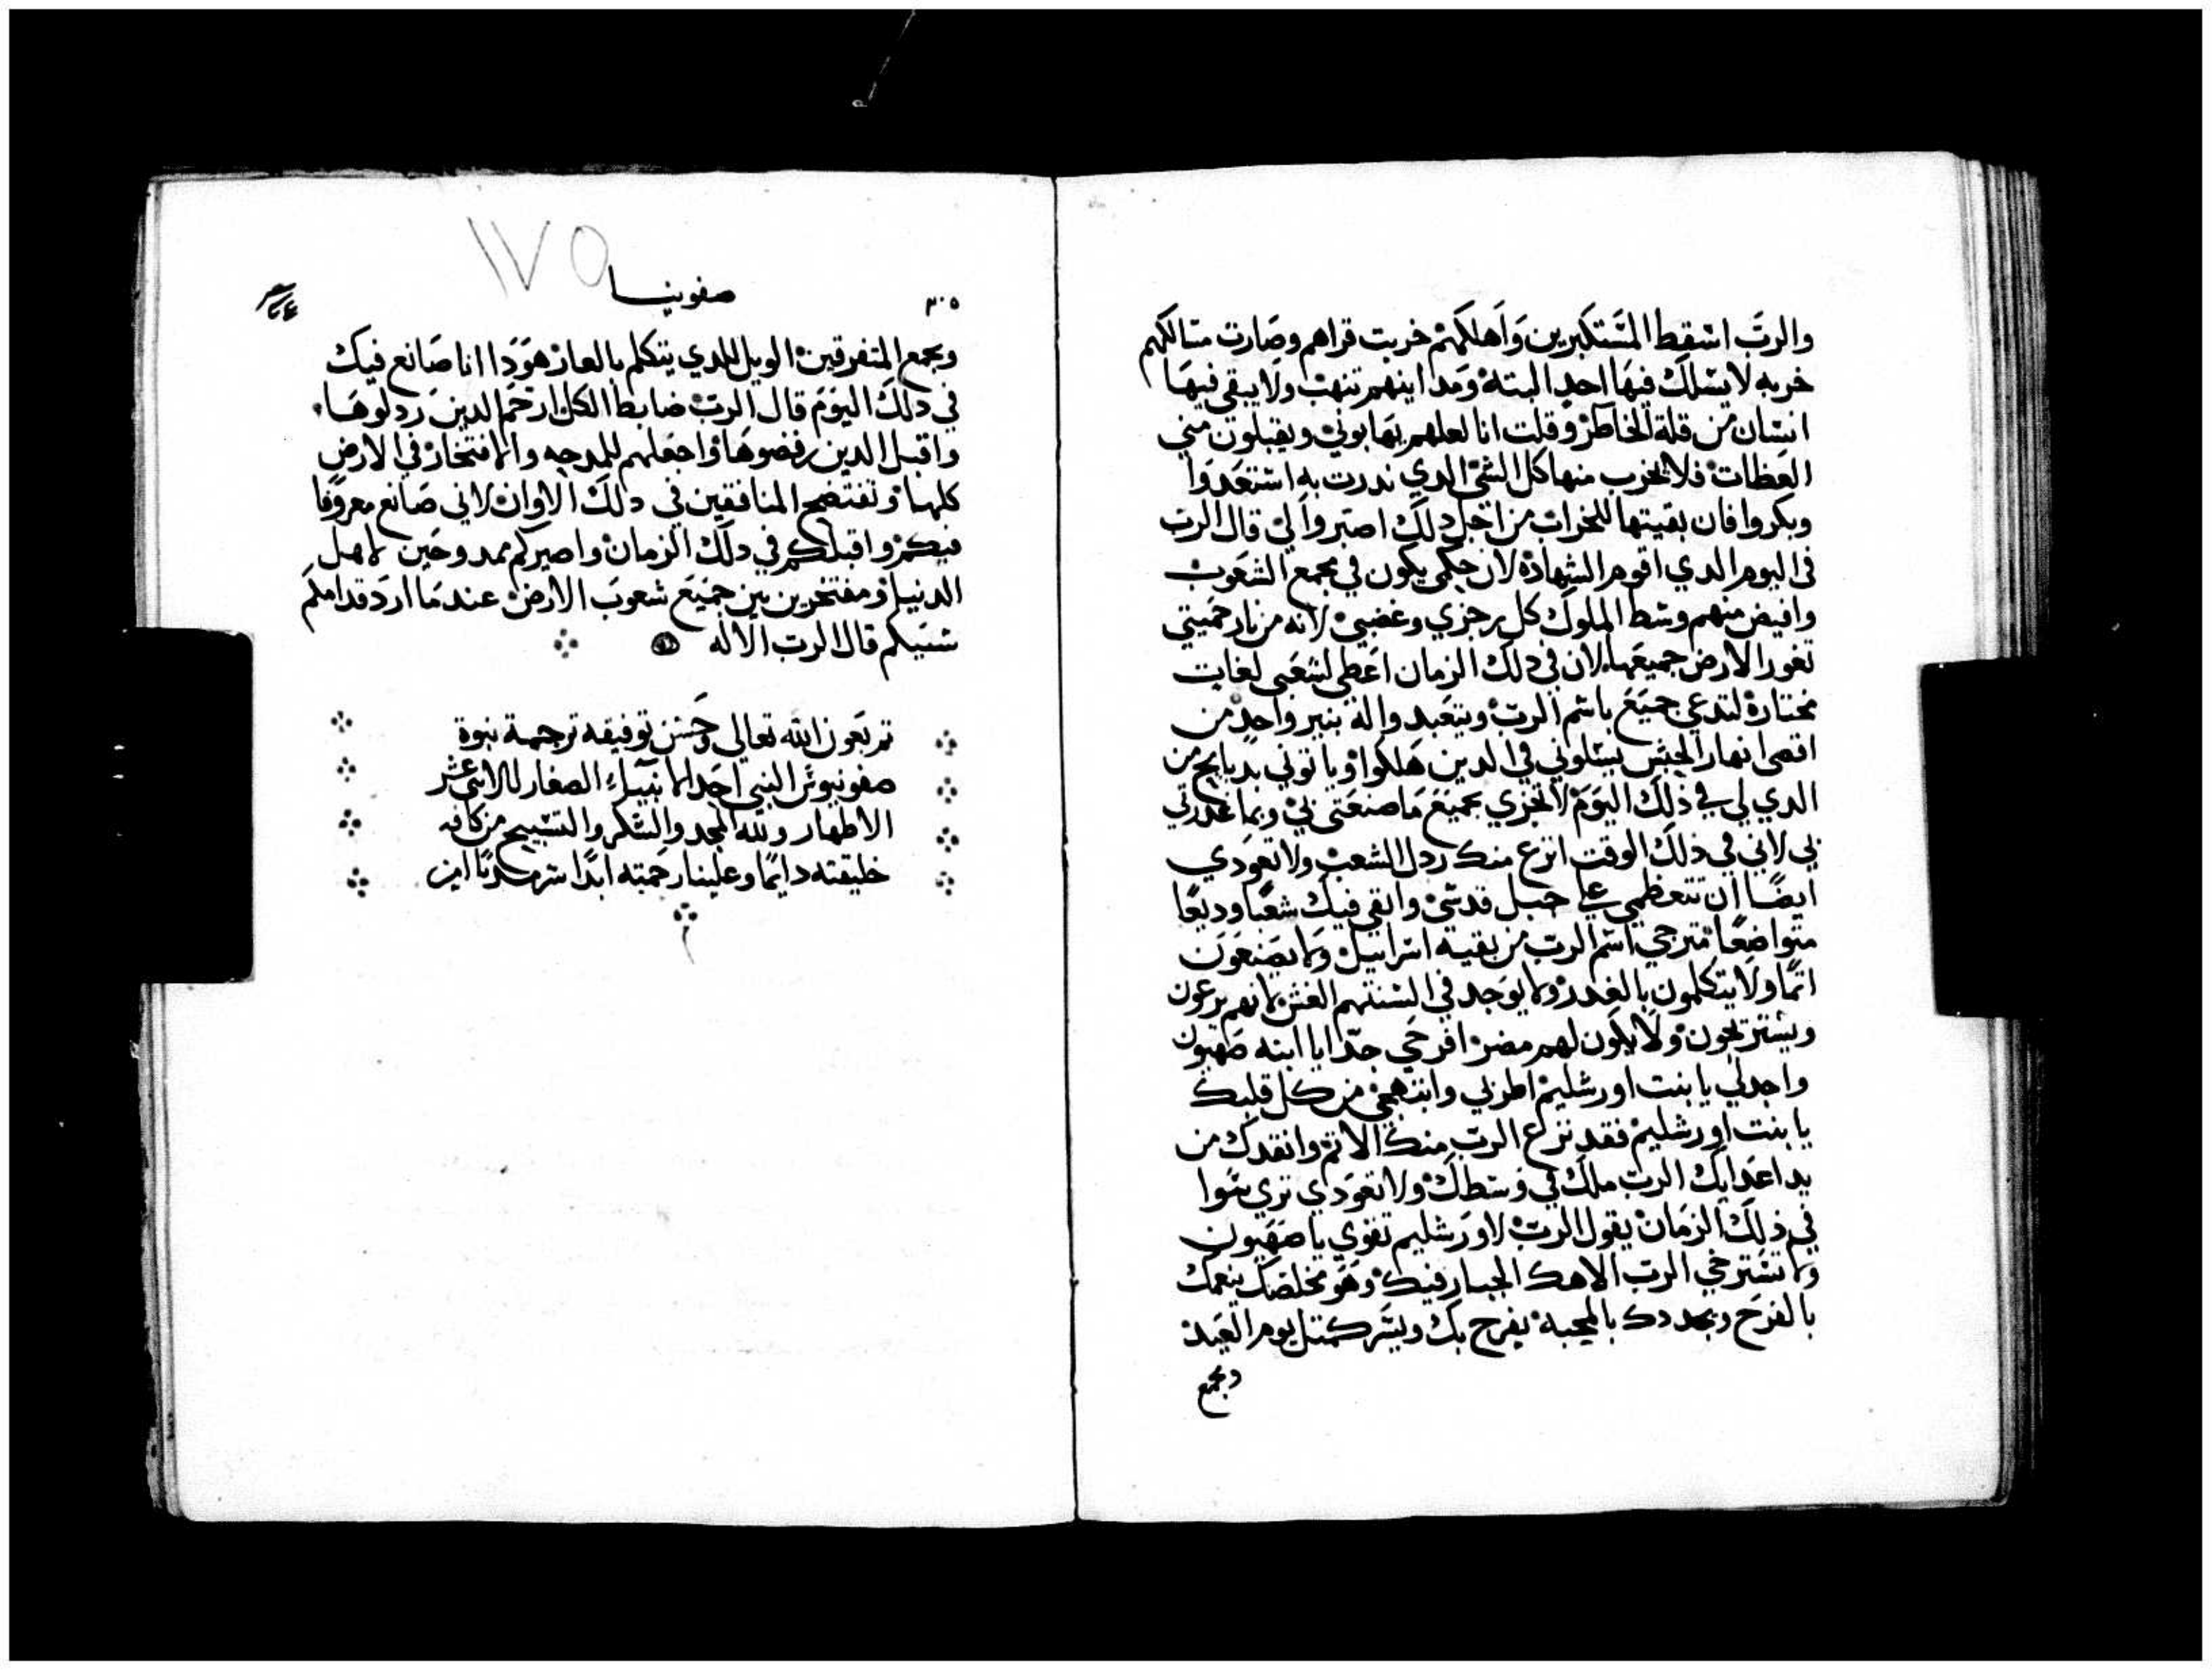 والرب اسقط المستكبرين واهلكهم خربت قراهم وصارت مسالكهم
خربه لا يسلك فيها احد البته ومداينهم تنهب ولا يبقى فيها
انسان من قلة الخاطر وقلت انا لعلهم يهابوني ويقبلون مني
العظات فلا يخرب منها كل الشي الدي ندرت به استعدوا
وبكروا فان بقيتها للخراب من اجل دلك اصبروا لي قال الرب
في اليوم الدي اقوم الشهادة لان حكمي يكون في مجمع الشعوب
وافيض منهم وسط الملوك كل رجزي وغضبي لانه من نار حميتي
تغور الارض جميعها لان في دلك الزمان اعطي لشعبي لغات
مختارة لتدعي جميع باسم الرب ويتعبدوا له بنير واحد من
اقصى انهار الحبش يسلوني في الدين هلكوا وياتوني بدبايح من
الدي لي في ذلك اليوم لا تخزي بجميع ما صنعتي بي وبما غدرتي
بي لاني في دلك الوقت انزع منك ردل الشعب ولا تعودي
ايضا ان تتعظمي على جبل قدسي وابقي فيك شعبا وديعا
متواضعا مترجي اسم الرب من بقية اسراييل ولا يصنعون
اثما ولا يتكلمون بالغدر ولا يوجد في السنتهم الغش لانهم يرعون
ويستريحون ولا يكون لهم مضر افرحي جدا يا ابنه صهيون
واجدلي يا بنت اورشليم اطربي وابتهجي من كل قلبك
يا بنت اورشليم فقد نزع الرب منك الاثم وانقدك من
يد اعدايك الرب ملك في وسطك ولا تعودي تري سوا
في ذلك الزمان يقول الرب لاورشليم تقوي يا صهيون
ولا تسترخي الرب الاهك الجبار فيك وهو مخلصك ينعمك
بالفرح ويجددك بالمحبة يفرح بك ويسر كمتل يوم العيد
ويجمع
١٧٥
٣٠٥ صفونيا
ويجمع المتفرقين الويل للدي يتكلم بالعار هودا انا صانع فيك
في دلك اليوم قال الرب ضابط الكل ارحم الدين ردلوها
واقبل الدين رفضوها واجعلهم للمدحه والافتخار في الارض
كلها وتفتضح المنافقين في دلك الاوان لاني صانع معروفا
فيكم واقبلكم في دلك الزمان واصيركم ممدوحين لاهل
الدنيا ومفتخرين بين جميع شعوب الارض عندما ارد قدامكم
سبيكم قال الرب الاله
تم بعون الله تعالى وحسن توفيقه ترجمة نبوة
صفونيوس النبي احد الانبياء الصغار الاثني عشر
الاطهار ولله المجد والشكر والتسبيح من كافه
خليقته دايما وعلينا رحمته ابدا سرمديا امين